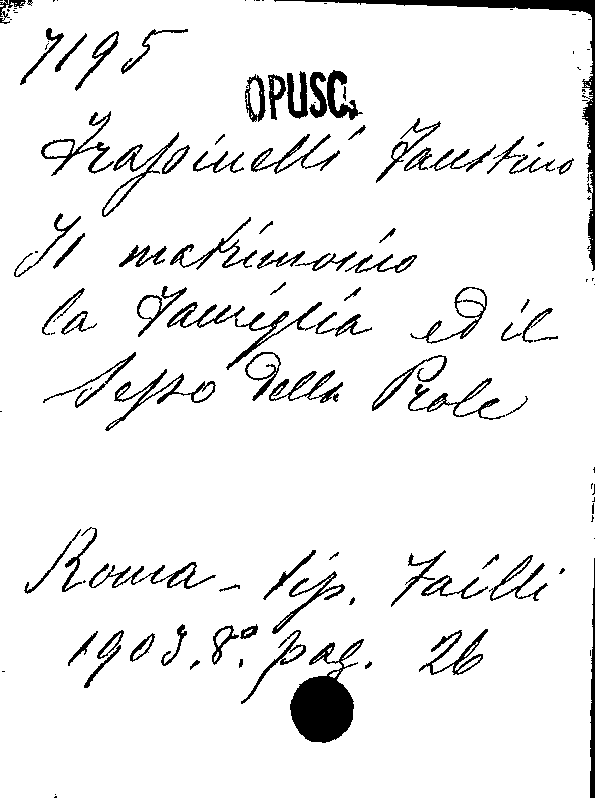 7195
OPUSC.
Frassinelli Faustino
Il matrimonio
la famiglia ed il
Sesso della Prole
Roma - tip. Failli
1903. 8º. pag. 26